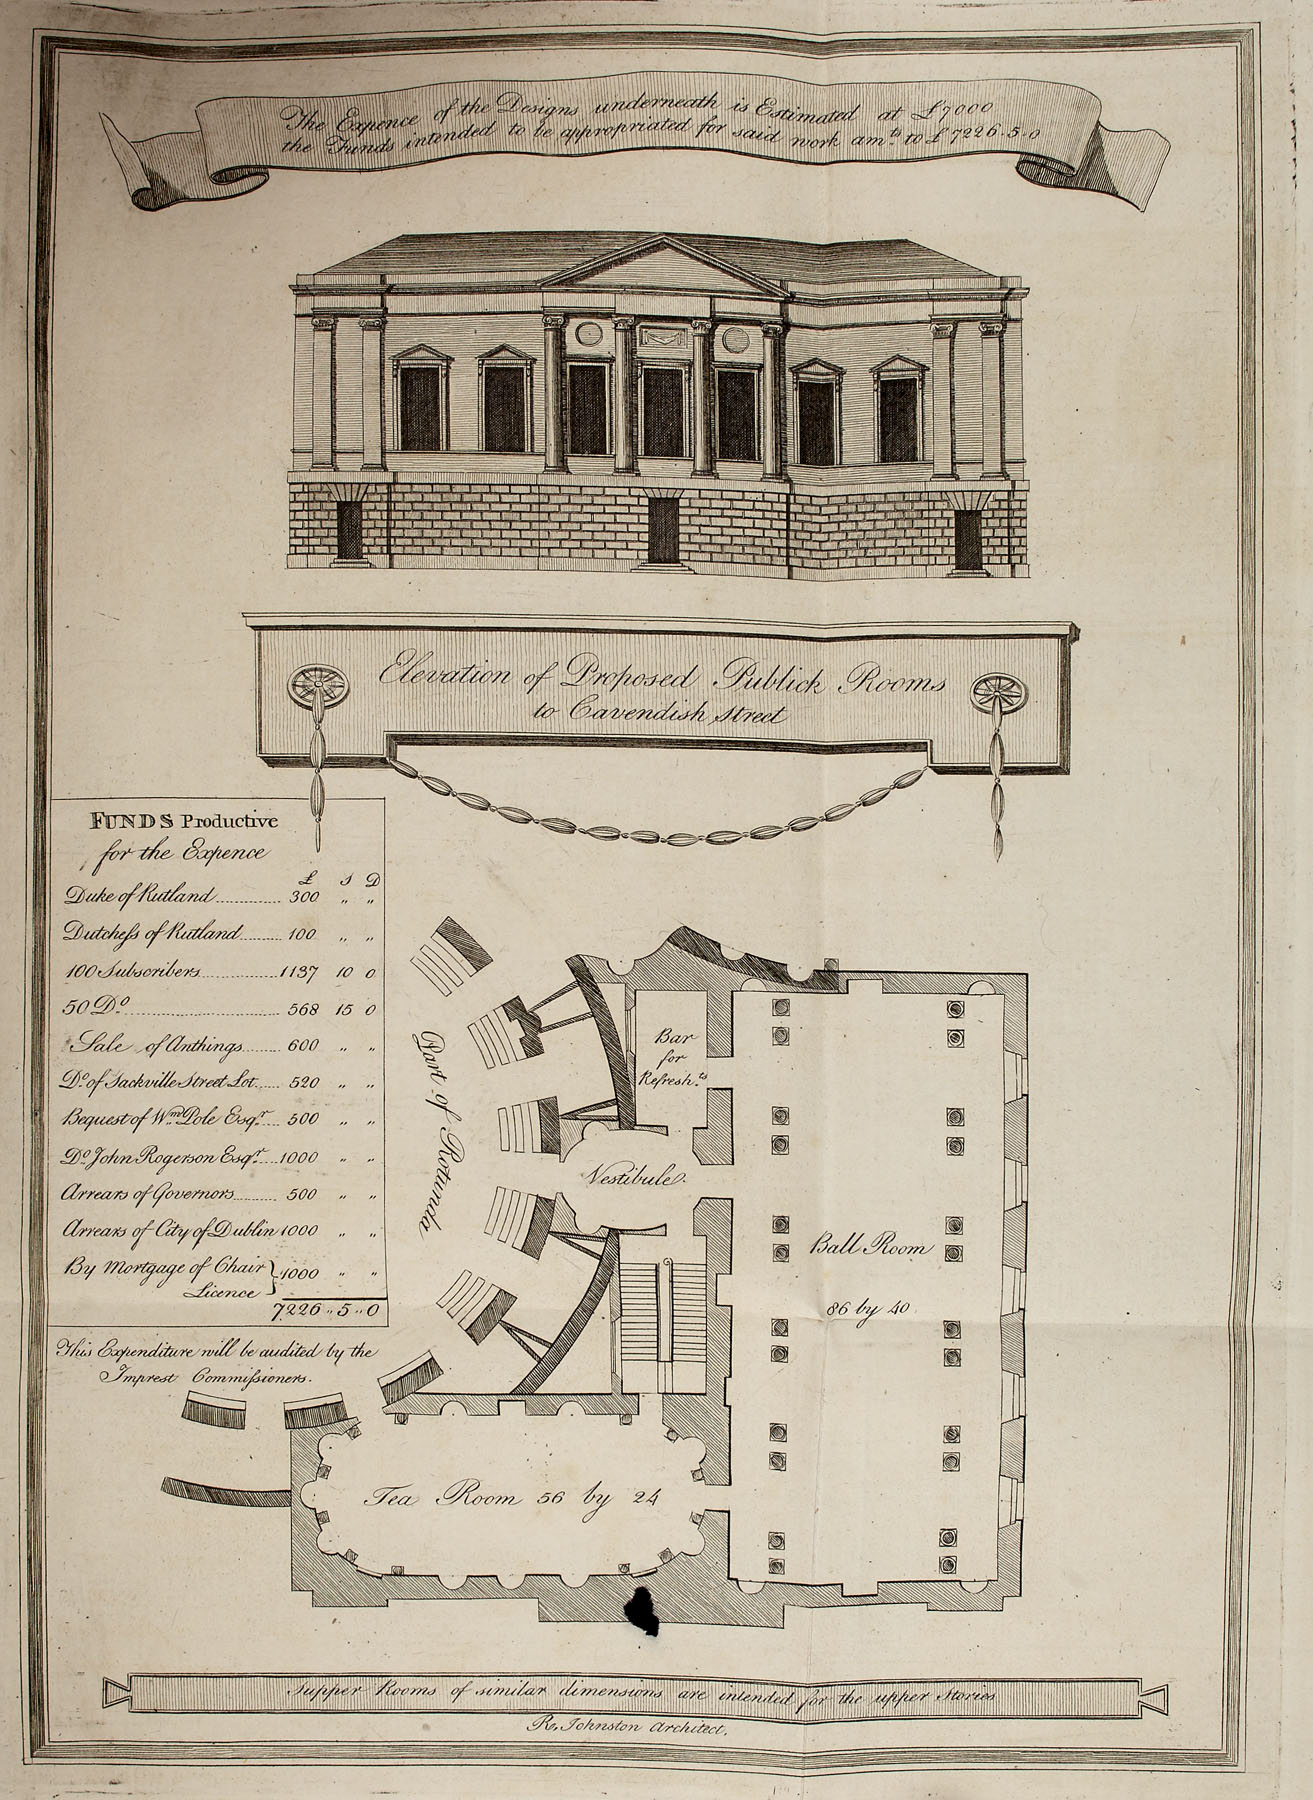 The Expence of the Designs underneath is Estimated at £7000
the Funds intended to be appropriated for said work am.ts to £7226-5-0
Elevation of Proposed Publick Rooms
to Cavendish Street
FUNDS Productive
for the Expence
£ S D
Duke of Rutland 300 " "
Dutchess of Rutland 100 " "
100 Subscribers 1137 10 0
50 Do. 568 15 0
Sale of Anthings 600 " "
Do. of Sackville Street Lot 520 " "
Bequest of Wm. Pole Esqr. 500 " "
Do. John Rogerson Esqr. 1000 " "
Arrears of Governors 500 " "
Arrears of City of Dublin 1000 " "
By Mortgage of Chair } 1000 " "
Licence
7226 " 5 " 0
This Expenditure will be audited by the
Imprest Commissioners.
Part of Rotunda
Bar
for
Refresh.ts
Vestibule.
Ball Room
86 by 40
Tea Room 56 by 24
Supper Rooms of similar dimensions are intended for the upper Stories
Rd. Johnston Architect.